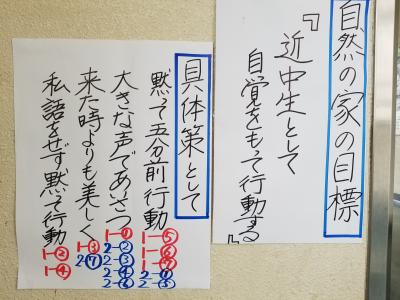 自然の家の目標
『近中生として
自覚をもって行動する』
具体策として
黙って五分前行動
1-⑤
1-⑥
1-⑦
2-①
2-⑤
大きな声であいさつ
1-①
2-②
2-③
2-④
2-⑥
来た時よりも美しく
1-③
2-⑦
私語をせず黙って行動
1-②
1-④